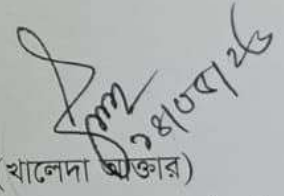 ২৪/০৫/২৬
(খালেদা আক্তার)